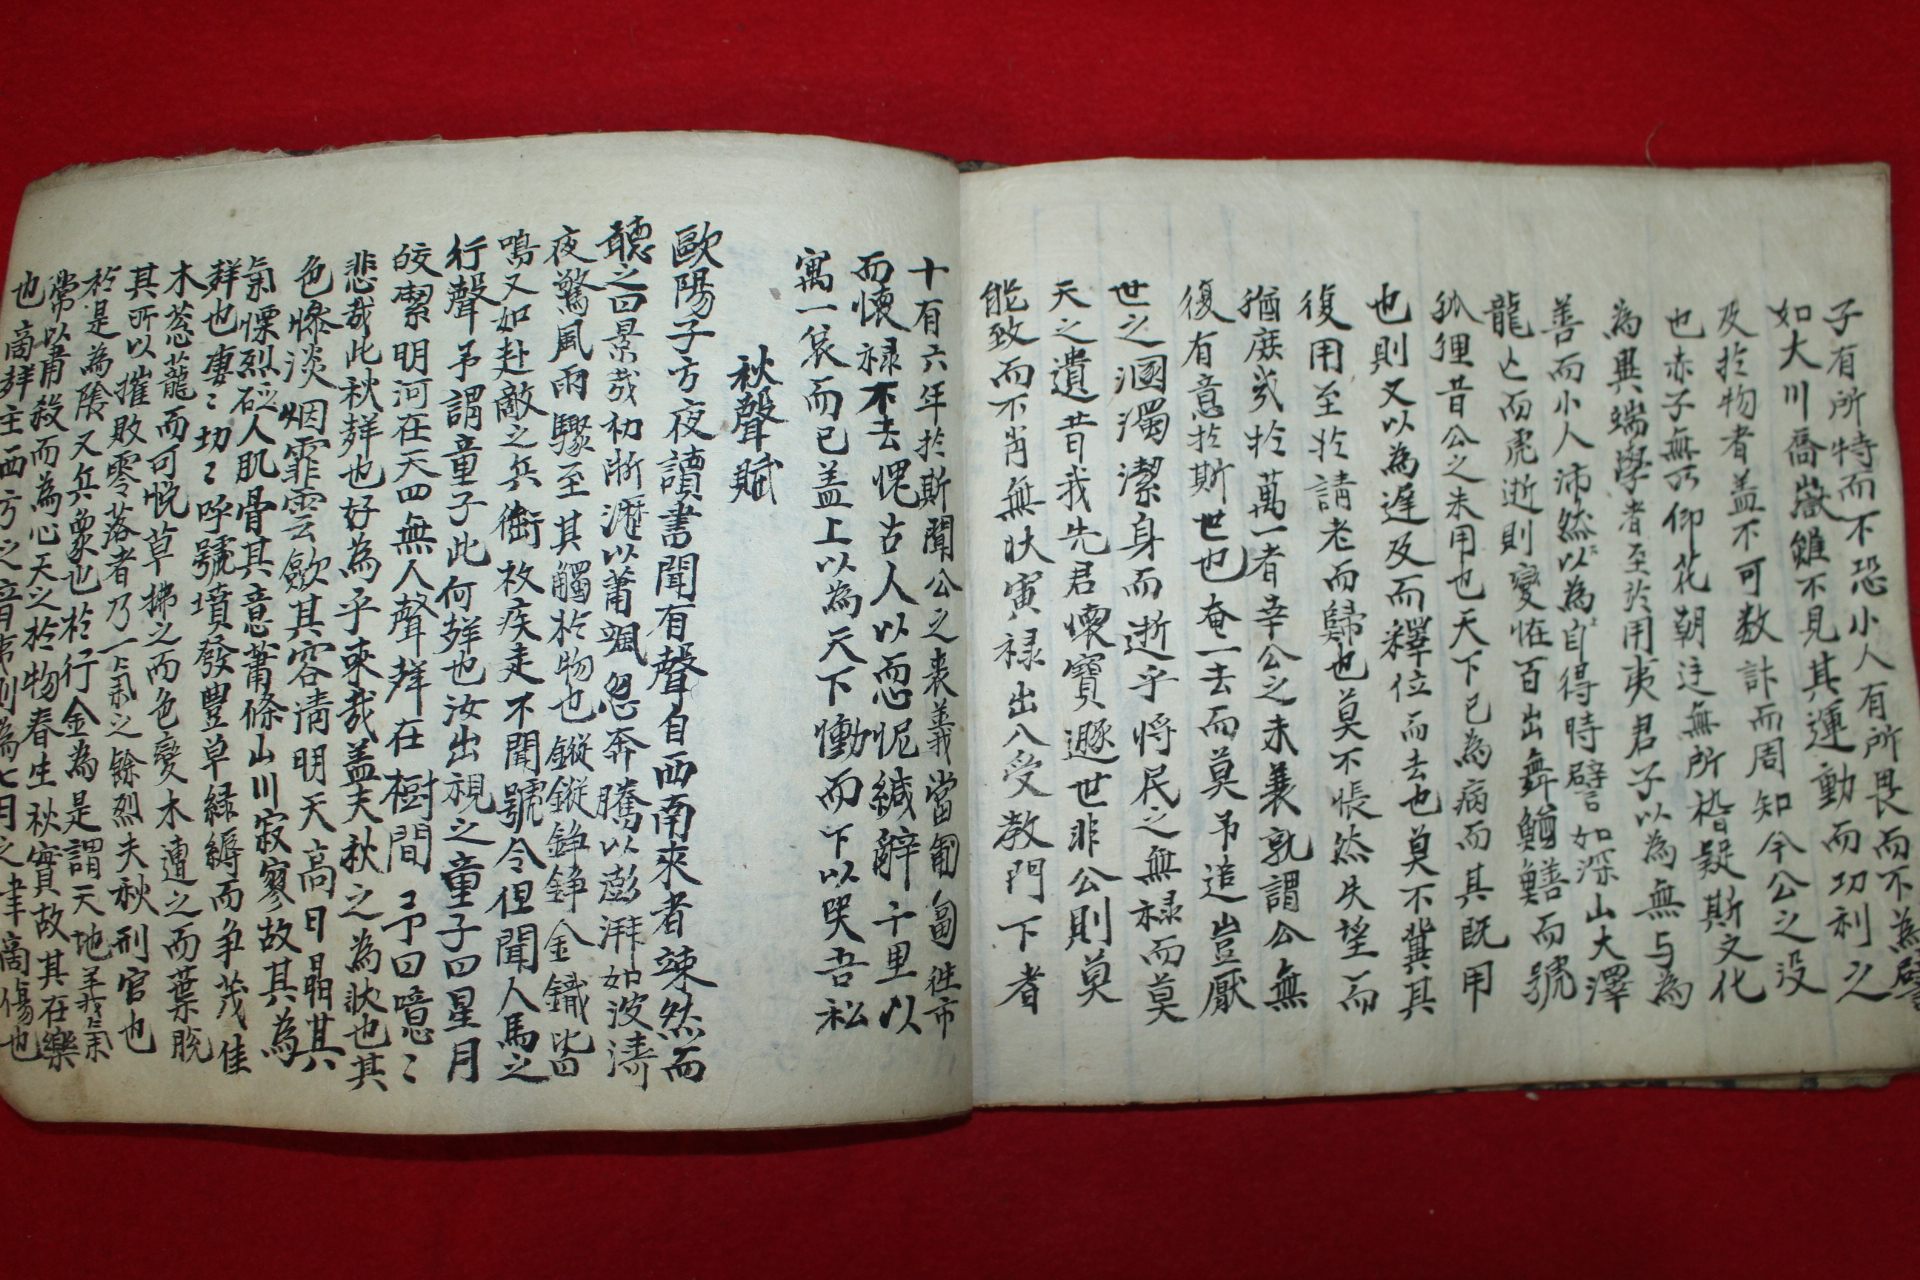 子有所恃而不恐小人有所畏而不為譬
如大川喬嶽雖不見其運動而功利之
及於物者盖不可数計而周知今公之没
也赤子無所仰花朝迋無所楷疑斯文化
為異端學者至於用夷君子以為無与為
善而小人沛然以為自得時譬如深山大澤
龍亡而虎逝則變恠百出舞鰌鱔而號
狐狸昔公之未用也天下已為病而其既用
也則又以為遅及而釋位而去也莫不冀其
復用至於請老而歸也莫不悵然失望而
猶庶幾於萬一者幸公之未㐮孰謂公無
復有意於斯世也奄一去而莫予追豈厭
世之溷濁潔身而逝乎将民之無祿而莫
天之遺昔我先君懷寶遯世非公則莫
能致而不肖無狀寅祿出入受教門下者
十有六年於斯聞公之喪義當匍匐徃市
而懷祿不去愧古人以恧怩緘辭千里以
寓一哀而已盖上以為天下慟而下以哭吾私
秋聲賦
歐陽子方夜讀書聞有聲自西南來者竦然而
聽之曰異哉初淅瀝以蕭颯忽奔騰以澎湃如波濤
夜驚風雨驟至其觸於物也鏦鏦錚錚金鐵皆
鳴又如赴敵之兵衘枚疾走不聞號令但聞人馬之
行聲予謂童子此何聲也汝出視之童子曰星月
皎潔明河在天四無人聲聲在樹間予曰噫ミ
悲哉此秋聲也好為乎來哉盖夫秋之為狀也其
色慘淡烟霏雲歛其容清明天高日晶其
氣慄烈砭人肌骨其意蕭條山川寂寥故其為
聲也凄ミ切ミ呼號墳發豐草緑縟而争茂佳
木葱蘢而可悅草拂之而色變木遭之而葉脫
其所以摧敗零落者乃一氣之餘烈夫秋刑官也
於是為陰又兵象也於行金為是謂天地義氣
常以肅殺而為心天之於物春生秋實故其在樂
也商聲主西方之音夷則為七月之律商傷也